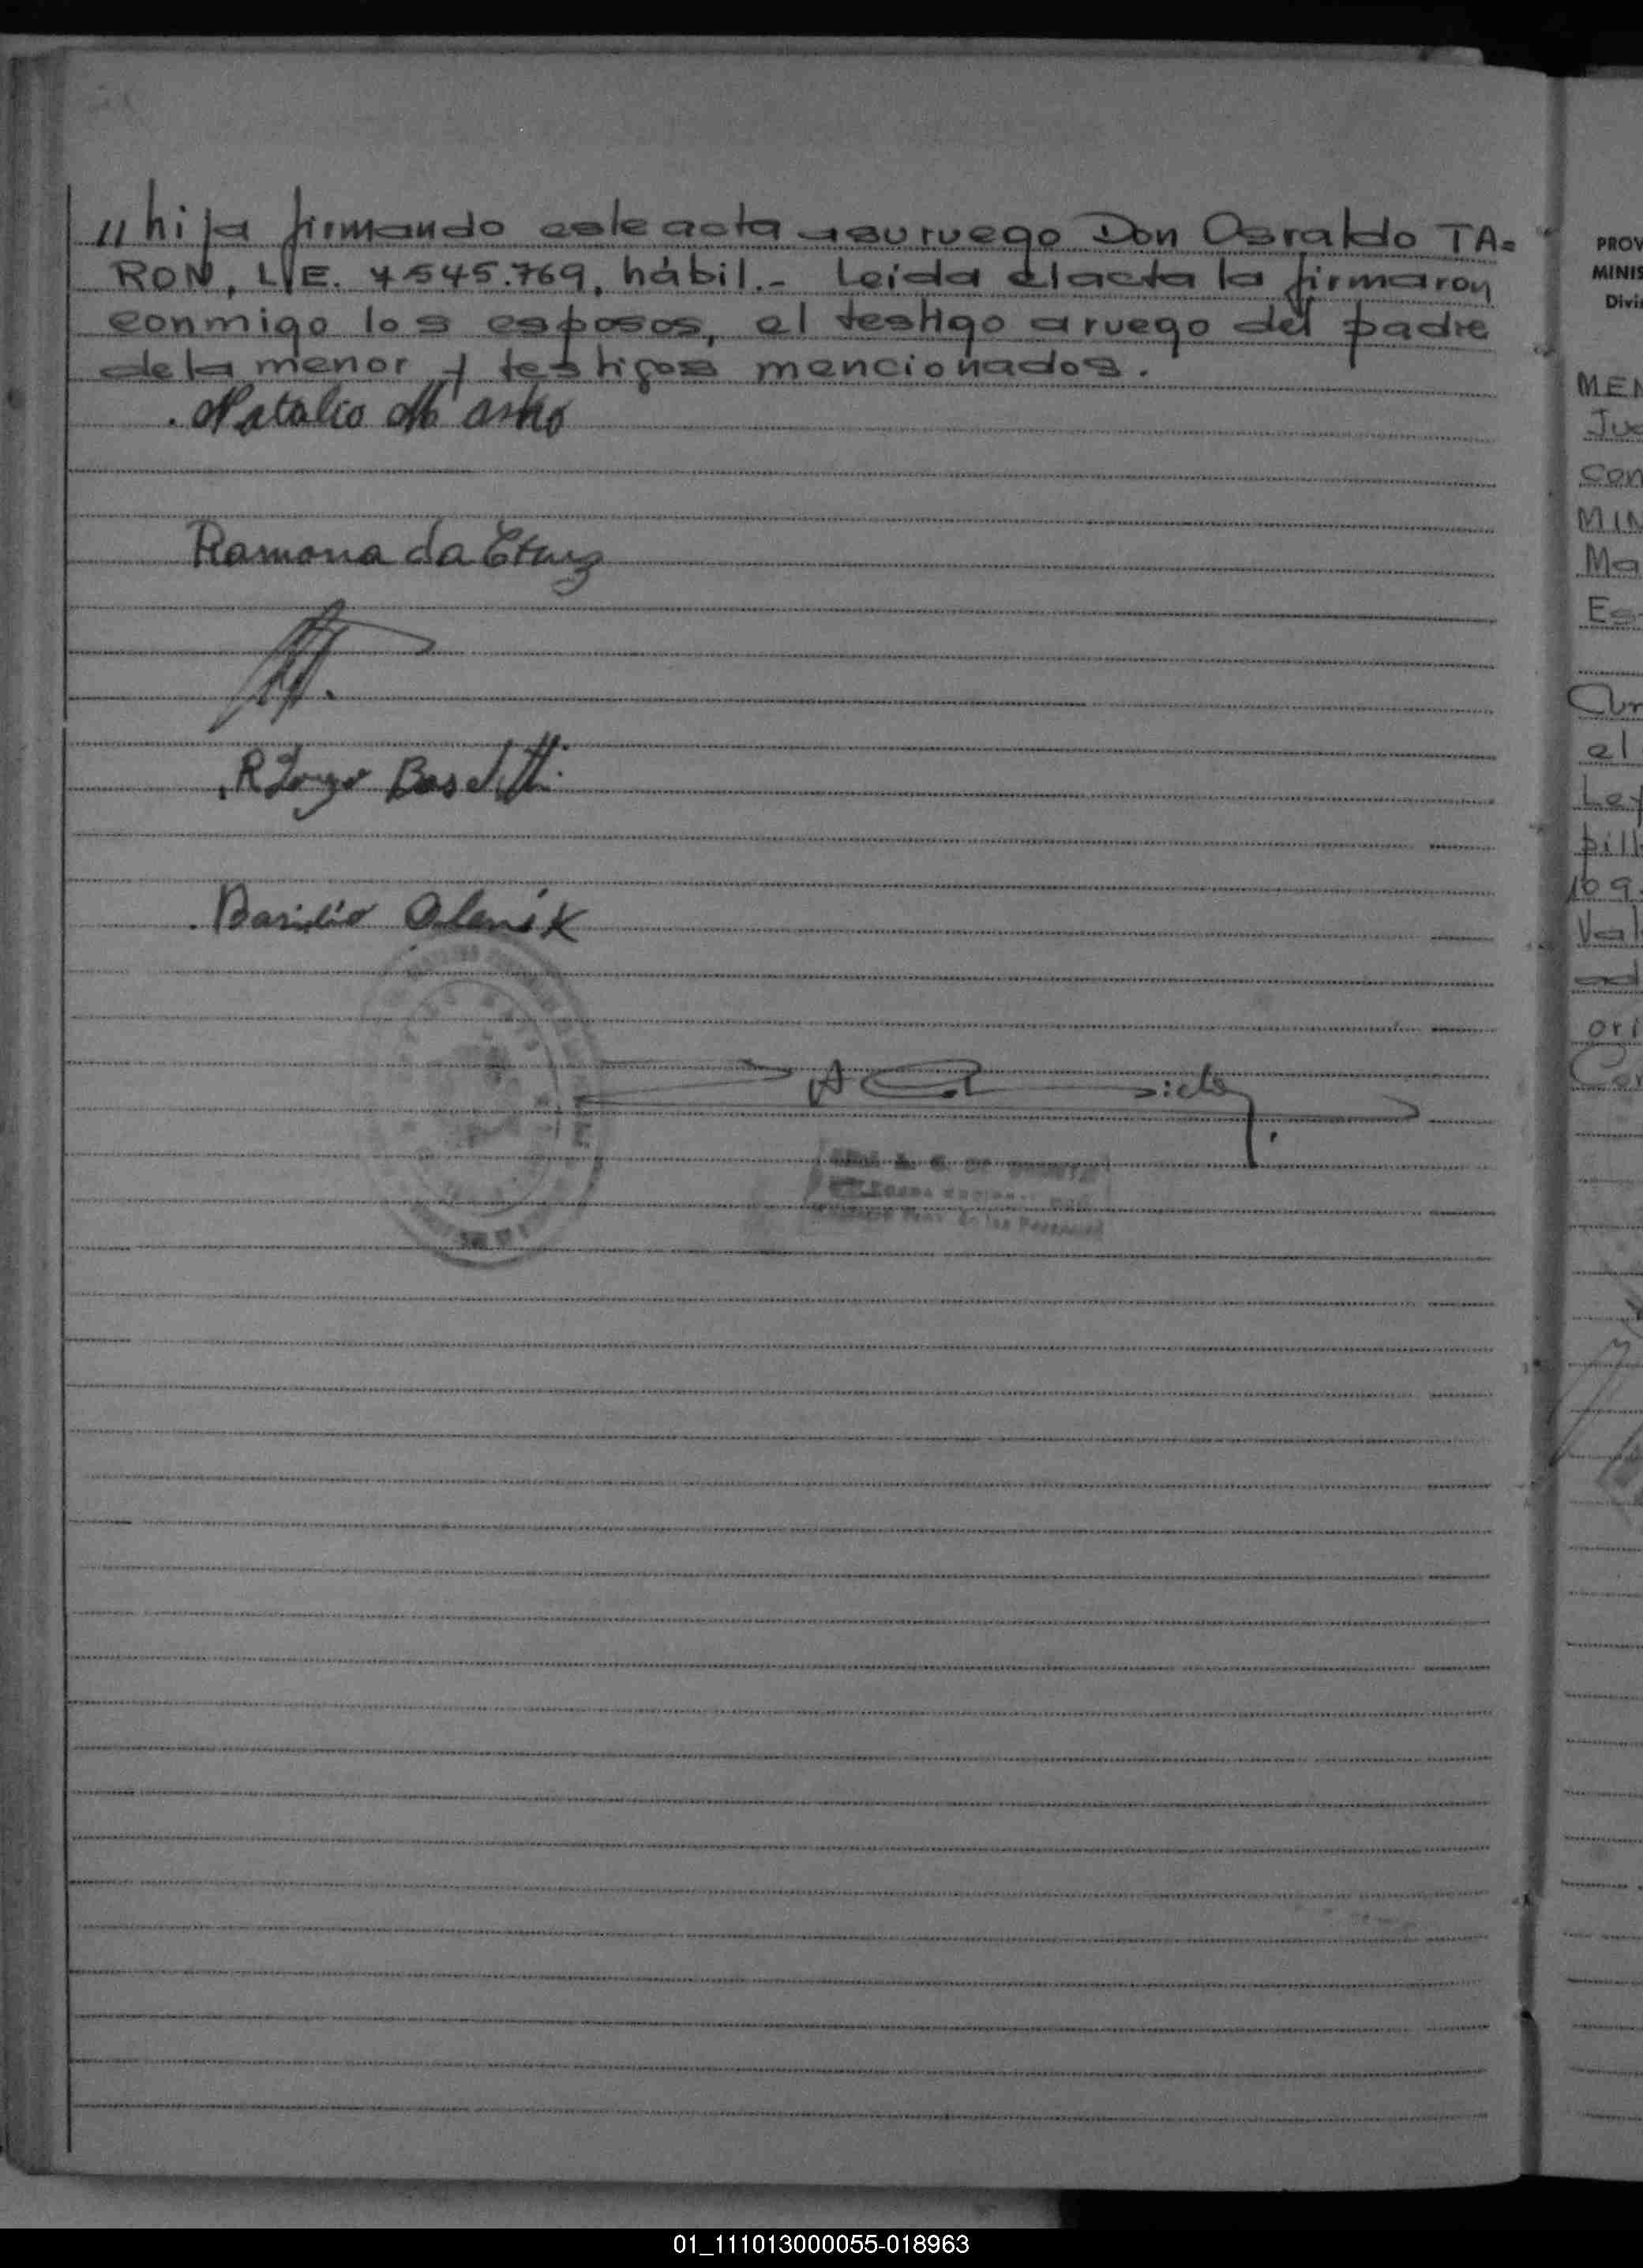 // hija firmando este acta a su ruego Don Osvaldo TA=
RON, L.E. 7.545.769, hábil.- Leída el acta la firmaron
conmigo los esposos, el testigo a ruego del padre
de la menor y testigos mencionados.
Natalio
Ramona da Cruz
R
Basilio Olenik
de las Personas
PROV
MINIS
Divi
MEN
Jue
con
MIN
Ma
Es
el
Ley
pill
109.
Val
ad
ori
01_111013000055-018963